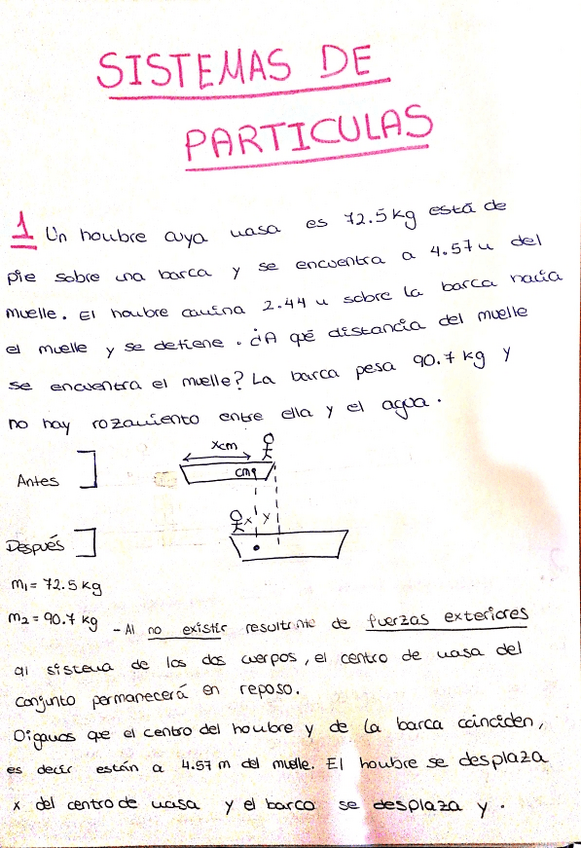 SISTEMAS DE
PARTICULAS
1 Un hombre cuya masa es 72.5 kg está de
pie sobre una barca y se encuentra a 4.57 m del
muelle. El hombre camina 2.44 m sobre la barca hacia
el muelle y se detiene. ¿A qué distancia del muelle
se encuentra el muelle? La barca pesa 90.7 kg y
no hay rozamiento entre ella y el agua.
xcm
Antes
cm
Después
x y
m₁ = 72.5 kg
m₂ = 90.7 kg - Al no existir resultante de fuerzas exteriores
al sistema de los dos cuerpos, el centro de masa del
conjunto permanecerá en reposo.
Digamos que el centro del hombre y de la barca coinciden,
es decir están a 4.57 m del muelle. El hombre se desplaza
x del centro de masa y el barco se desplaza y.